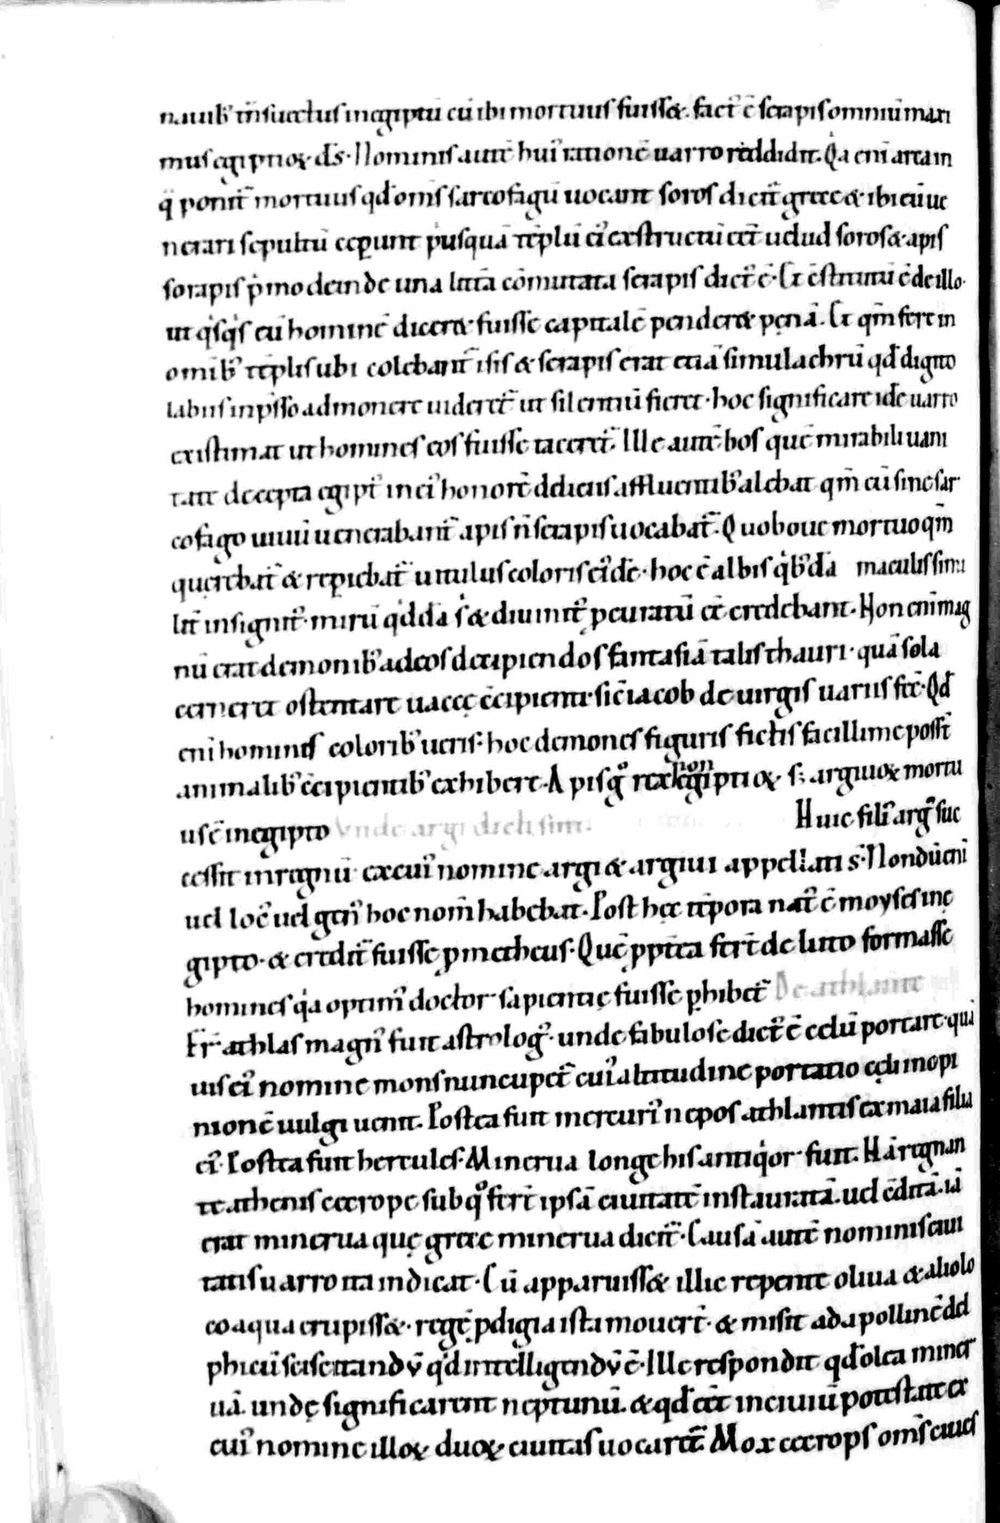 nauib; t̄nsuectus in egiptū cū ibi mortuus fuiss&. fact᷒ ē serapis omniū maxi
mus egiptioꝝ d̄s. Nominis aut̄ hui᷒ rationē uarro reddidit. Q̇a eni arca in
q̄ ponit̄ mortuus qđ om̄s sarcofagū uocant soros dicit̄ grece & ibi eū ue
nerari sepultū ceperunt p̓usquā tēplū ei᷒ exstructū eēt uelud soros & apis
sorapis p̓mo deinde una litt̄a cōmutata serapis dict᷒ ē. Et cōstitutū ē de illo.
ut q̇sq̇s eū hominē dicer& fuisse capitalē pender& penā. Et qm̄ fere in
omib; tēplis ubi colebant̄ isis & serapis erat etiā simulachrū qđ digito
labiis inp̄sso admonere uideret̄ ut silentiū fieret. hoc significare idē uarro
existimat ut homines eos fuisse taceret̄. Ille aut̄ bos quē mirabili uani
tate decepta egipt᷒ in ei᷒ honorē deliciis affluentib; alebat qm̄ eū sine sar
cofago uiuū uenerabant̄ apis n̄ serapis uocabat̄. Quo boue mortuo qm̄
querebat̄ & repiebat̄ uitulus coloris ei᷒dē. hoc ē albis q̇b;dā maculis simi
lit̄ insignit᷒. mirū q̇ddā s & diuinit᷒ pcuratū eē credebant. Non eni mag
nū erat demonib; ad eos decipiendos fantasiā talis thauri. quā sola
cerneret ostentare uacce cōcipienti. sic iacob de uirgis uariis fec̄. Qđ
eni homines colorib; ueris. hoc demones figuris fictis facillime posst̄
animalib; cōcipientib; exhibere. Apis g̊ rex non egiptioꝝ. s; argiuoꝝ mortu
us ē in egipto Vnde argi dicti sint. Huic fili᷒ arg᷒ suc
cessit in regnū ex cui᷒ nomine argi & argiui appellati s̄. Nondū eni
uel loc᷒ uel gen᷒ hoc nom̄ habebat. Post hec tēpora nat᷒ ē moyses in e
gipto. & credit̄ fuisse prometheus. Quē pp̄tea fer̄t de luto formasse
homines q̇a optim᷒ doctor sapientie fuisse phibet̄ De athlante
Fr̄ athlas magn᷒ fuit astrolog᷒. unde fabulose dict᷒ ē celū portare. quā
uis ei᷒ nomine mons nuncupet̄ cui᷒ altitudine portatio celi in opi
nionē uulgi uenit. Postea fuit mercuri᷒ nepos athlantis ex maia filia
ei᷒. Postea fuit hercules. Minerua longe his antiq̇or fuit. Nā regnan
te athenis cecrope sub q̊ fer̄t ipsā ciuitatē instauratā. uel cōditā. iā
erat minerua que grece minerua dicit̄. Causā aut̄ nominis ciui
tatis uarro ita indicat. Cū apparuiss& illic repente oliua & alio lo
co aqua erupiss&. regē pdigia ista mouer̄t. & misit ad apollinē del
phicū sciscitandū qđ intelligendū ē. Ille respondit qđ olea miner
uā. unde significarent neptunū. & qđ eēt in ciuiū potestate ex
cui᷒ nomine illoꝝ duoꝝ ciuitas uocaret̄ Mox cecrops om̄s ciues